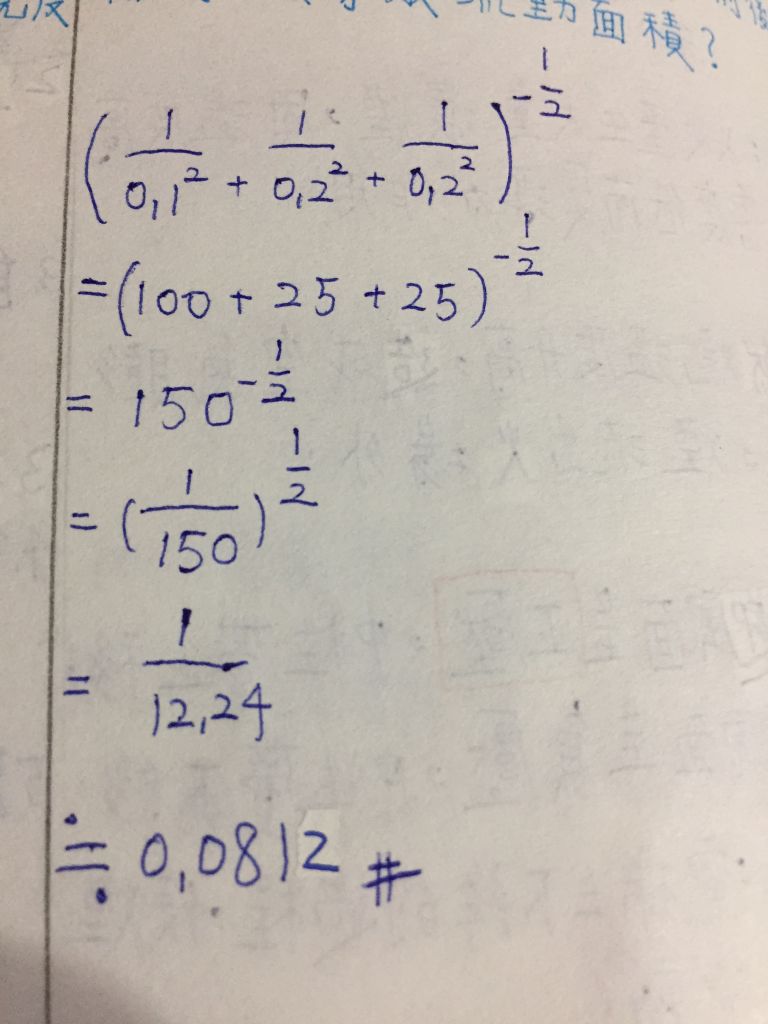 流動面積?
(1/0,1² + 1/0,2² + 1/0,2²)^-1/2
=(100 + 25 + 25)^-1/2
= 150^-1/2
= (1/150)^1/2
= 1/12,24
≒ 0,0812 #